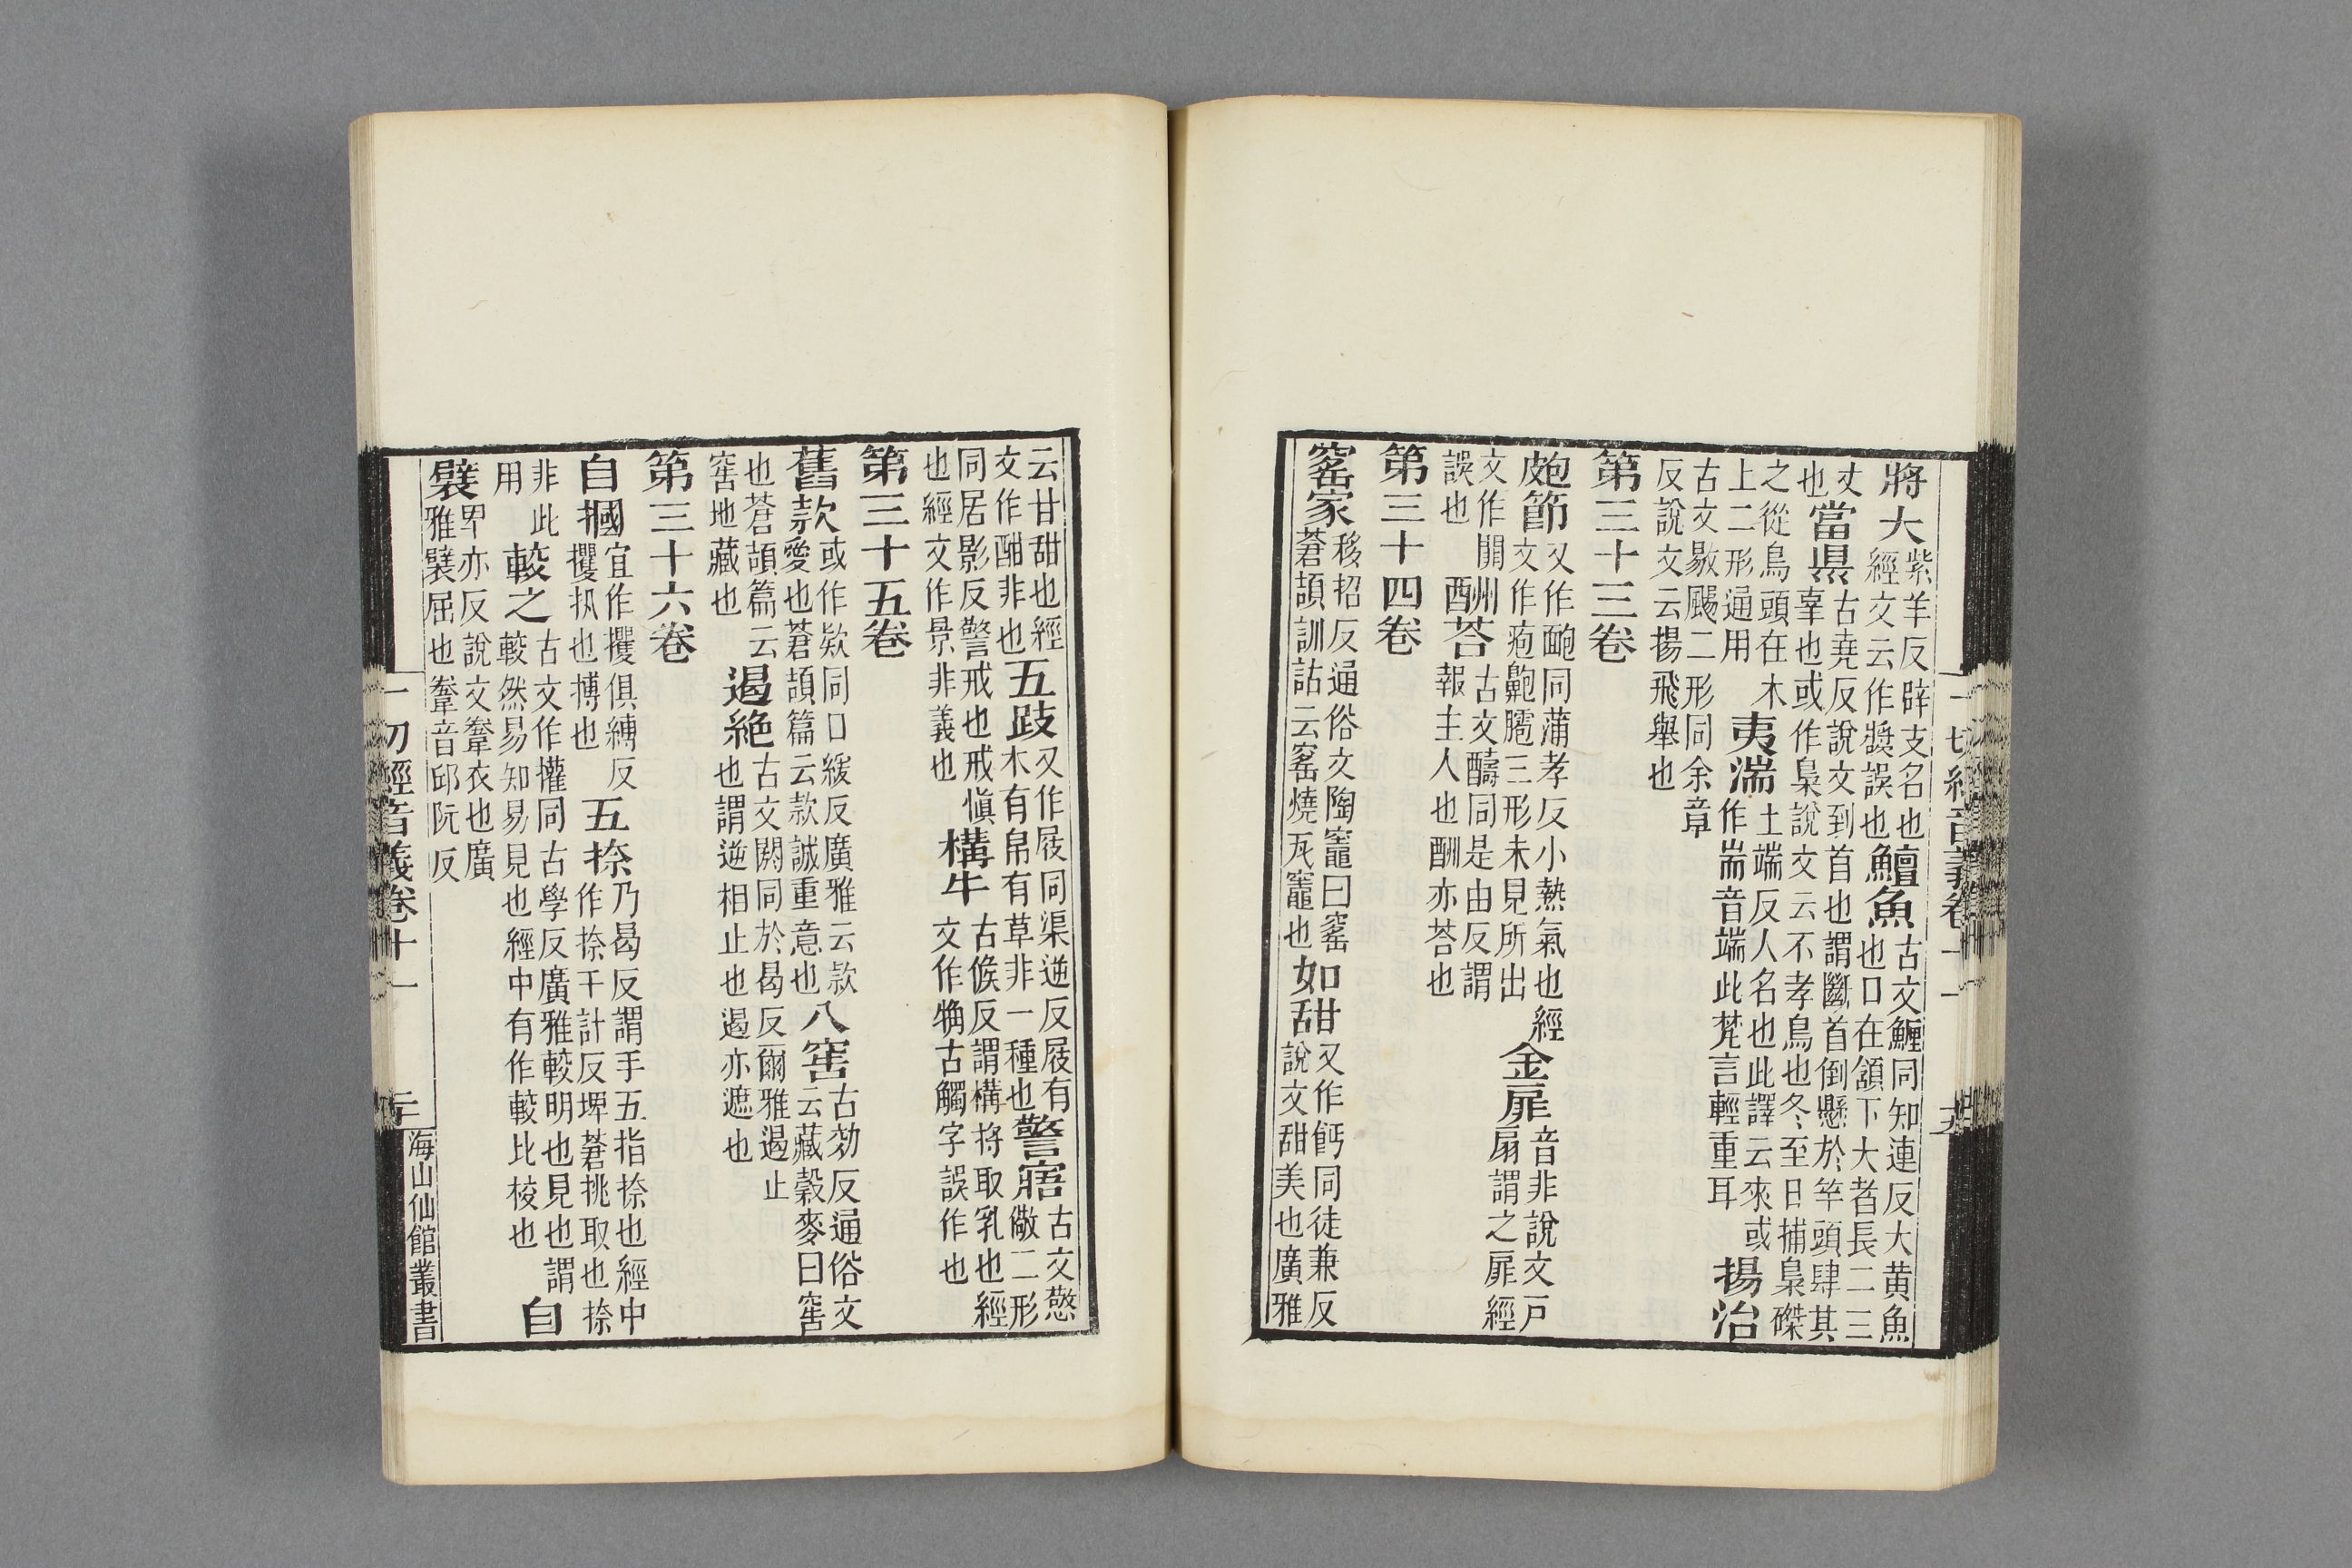 將大紫羊反辟支名也鱣魚古文鱺同知連反大黄魚
經文云作奬誤也也口在頷下大者長二三
丈當県古堯反說文到首也謂斷首倒懸於竿頭肆其
也辜也或作梟說文云不孝鳥也冬至日捕梟磔
之從鳥頭在木夷湍土端反人名也此譯云來或
上二形通用作耑音端此梵言輕重耳揚治
古文敭颺二形同余章
反說文云揚飛舉也
第三十三卷
皰節又作䩝同蒲孝反小熱氣也經金扉音非說文戸
文作疱皰臕三形未見所出扇謂之扉經
文作閞酬荅古文醻同是由反謂
誤也報主人也酬亦荅也
第三十四卷
窰家移招反通俗文陶竈曰窰如甜又作𩚵同徒兼反
蒼頡訓詁云窰燒瓦竈也說文甜美也廣雅
云甘甜也經五跂又作屐同渠逆反屐有警寤古文憼
文作酣非也木有帛有草非一種也儆二形
同居影反警戒也戒愼構牛古候反謂構捋取乳也經
也經文作景非義也文作㨶古觸字誤作也
第三十五卷
舊款或作欵同口緩反廣雅云款八窖古効反通俗文
愛也蒼頡篇云款誠重意也云藏穀麥曰窖
也蒼頡篇云遏絶古文閼同於曷反爾雅遏止
窖地藏也也謂逆相止也遏亦遮也
第三十六卷
自摑宜作攫俱縛反五捺乃曷反謂手五指捺也經中
攫扠也搏也作捺干計反埤蒼挑取也捺
非此較之古文作搉同古學反廣雅較明也見也謂自
用較然易知易見也經中有作較比棱也
襞㢸亦反說文韏衣也廣
雅襞屈也韏音邱阮反
一切經音義卷十一
海山仙館叢書